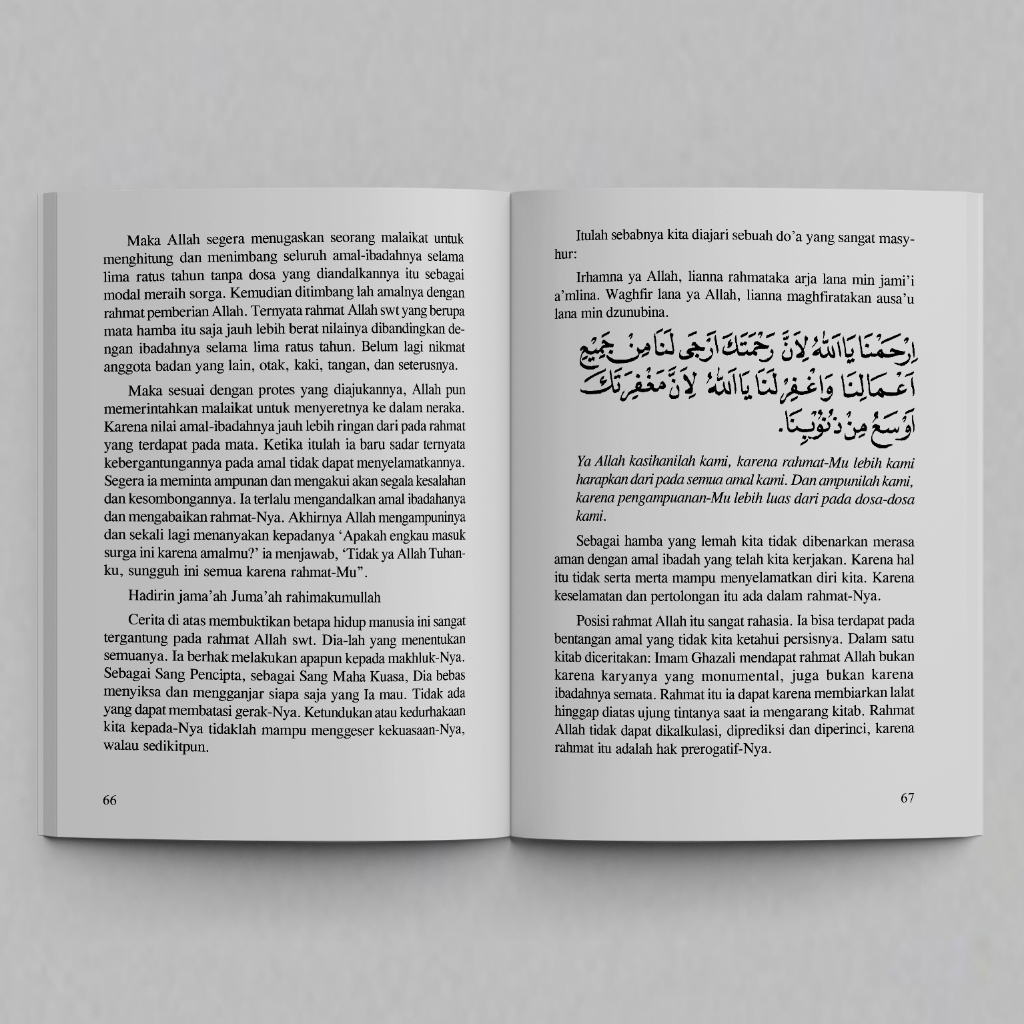 Maka Allah segera menugaskan seorang malaikat untuk
menghitung dan menimbang seluruh amal-ibadahnya selama
lima ratus tahun tanpa dosa yang diandalkannya itu sebagai
modal meraih sorga. Kemudian ditimbang lah amalnya dengan
rahmat pemberian Allah. Ternyata rahmat Allah swt yang berupa
mata hamba itu saja jauh lebih berat nilainya dibandingkan de-
ngan ibadahnya selama lima ratus tahun. Belum lagi nikmat
anggota badan yang lain, otak, kaki, tangan, dan seterusnya.
Maka sesuai dengan protes yang diajukannya, Allah pun
memerintahkan malaikat untuk menyeretnya ke dalam neraka.
Karena nilai amal-ibadahnya jauh lebih ringan dari pada rahmat
yang terdapat pada mata. Ketika itulah ia baru sadar ternyata
kebergantungannya pada amal tidak dapat menyelamatkannya.
Segera ia meminta ampunan dan mengakui akan segala kesalahan
dan kesombongannya. Ia terlalu mengandalkan amal ibadahanya
dan mengabaikan rahmat-Nya. Akhirnya Allah mengampuninya
dan sekali lagi menanyakan kepadanya ‘Apakah engkau masuk
surga ini karena amalmu?’ ia menjawab, ‘Tidak ya Allah Tuhan-
ku, sungguh ini semua karena rahmat-Mu”.
Hadirin jama’ah Juma’ah rahimakumullah
Cerita di atas membuktikan betapa hidup manusia ini sangat
tergantung pada rahmat Allah swt. Dia-lah yang menentukan
semuanya. Ia berhak melakukan apapun kepada makhluk-Nya.
Sebagai Sang Pencipta, sebagai Sang Maha Kuasa, Dia bebas
menyiksa dan mengganjar siapa saja yang Ia mau. Tidak ada
yang dapat membatasi gerak-Nya. Ketundukan atau kedurhakaan
kita kepada-Nya tidaklah mampu menggeser kekuasaan-Nya,
walau sedikitpun.
66
Itulah sebabnya kita diajari sebuah do’a yang sangat masy-
hur:
Irhamna ya Allah, lianna rahmataka arja lana min jami’i
a’mlina. Waghfir lana ya Allah, lianna maghfiratakan ausa’u
lana min dzunubina.
اِرْحَمْنَا يَااَللّٰهُ لِاَنَّ رَحْمَتَكَ اَرْجَى لَنَا مِنْ جَمِيْعِ
اَعْمَالِنَا وَاغْفِرْ لَنَا يَااَللّٰهُ لِاَنَّ مَغْفِرَتَكَ
اَوْسَعُ مِنْ ذُنُوْبِنَا.
Ya Allah kasihanilah kami, karena rahmat-Mu lebih kami
harapkan dari pada semua amal kami. Dan ampunilah kami,
karena pengampuanan-Mu lebih luas dari pada dosa-dosa
kami.
Sebagai hamba yang lemah kita tidak dibenarkan merasa
aman dengan amal ibadah yang telah kita kerjakan. Karena hal
itu tidak serta merta mampu menyelamatkan diri kita. Karena
keselamatan dan pertolongan itu ada dalam rahmat-Nya.
Posisi rahmat Allah itu sangat rahasia. Ia bisa terdapat pada
bentangan amal yang tidak kita ketahui persisnya. Dalam satu
kitab diceritakan: Imam Ghazali mendapat rahmat Allah bukan
karena karyanya yang monumental, juga bukan karena
ibadahnya semata. Rahmat itu ia dapat karena membiarkan lalat
hinggap diatas ujung tintanya saat ia mengarang kitab. Rahmat
Allah tidak dapat dikalkulasi, diprediksi dan diperinci, karena
rahmat itu adalah hak prerogatif-Nya.
67